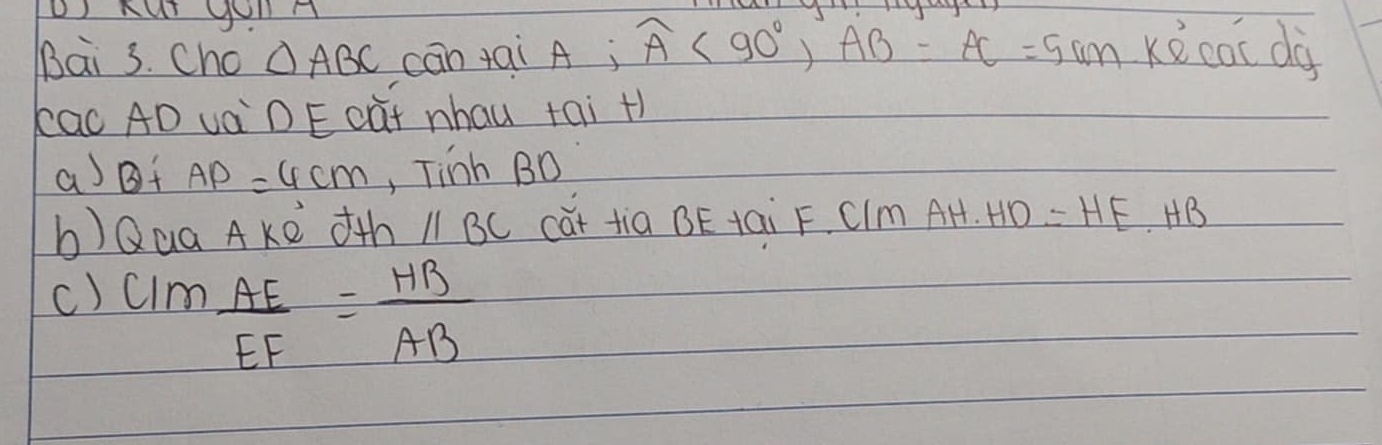 b) Rút gọn A
Bài 3. Cho △ABC cân tại A ; Â < 90°, AB = AC = 5cm kẻ các đg
cao AD và DE cắt nhau tại H
a) Bt AD = 4cm, Tính BD
b) Qua A kẻ đth // BC cắt tia BE tại F. C/m AH.HD = HE.HB
c) C/m AE/EF = HB/AB